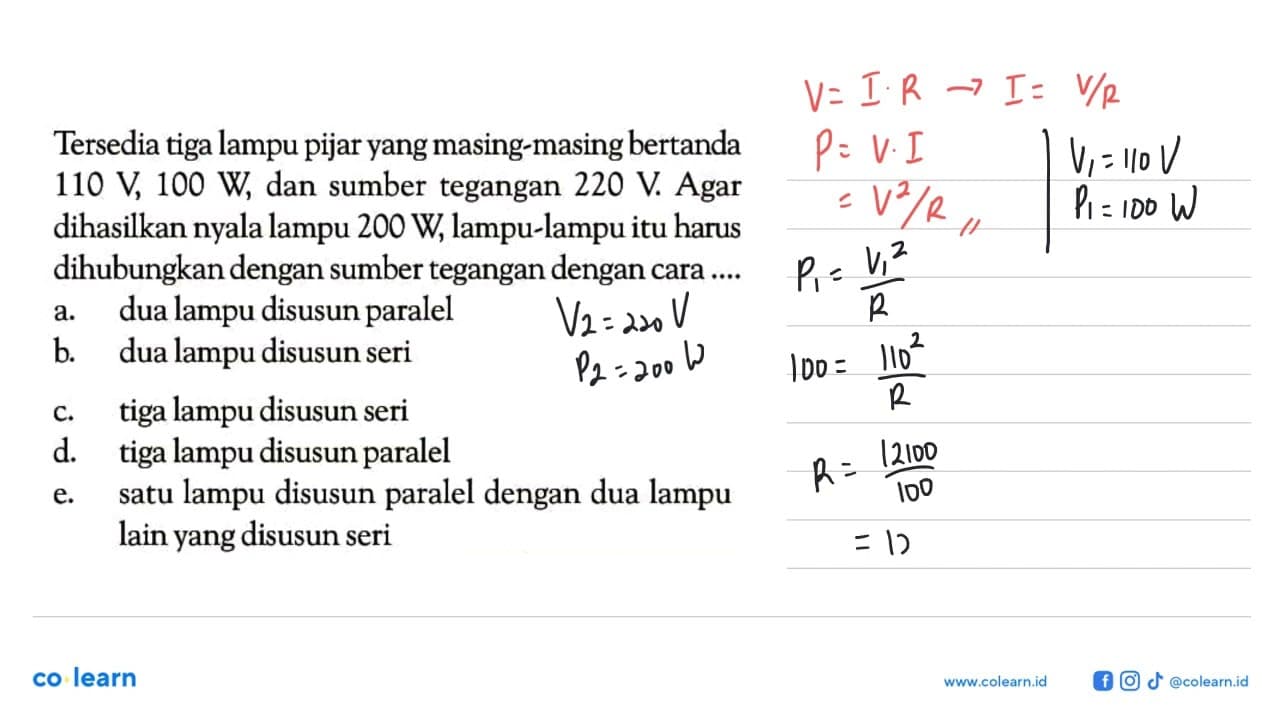 Tersedia tiga lampu pijar yang masing-masing bertanda
110 V, 100 W, dan sumber tegangan 220 V. Agar
dihasilkan nyala lampu 200 W, lampu-lampu itu harus
dihubungkan dengan sumber tegangan dengan cara ....
a. dua lampu disusun paralel
b. dua lampu disusun seri
c. tiga lampu disusun seri
d. tiga lampu disusun paralel
e. satu lampu disusun paralel dengan dua lampu
lain yang disusun seri
V₂ = 220 V
P₂ = 200 W
V = I · R → I = V/R
P = V · I
= V²/R //
V₁ = 110 V
P₁ = 100 W
P₁ = V₁²/R
100 = 110²/R
R = 12100/100
= 12
co learn
www.colearn.id
@colearn.id